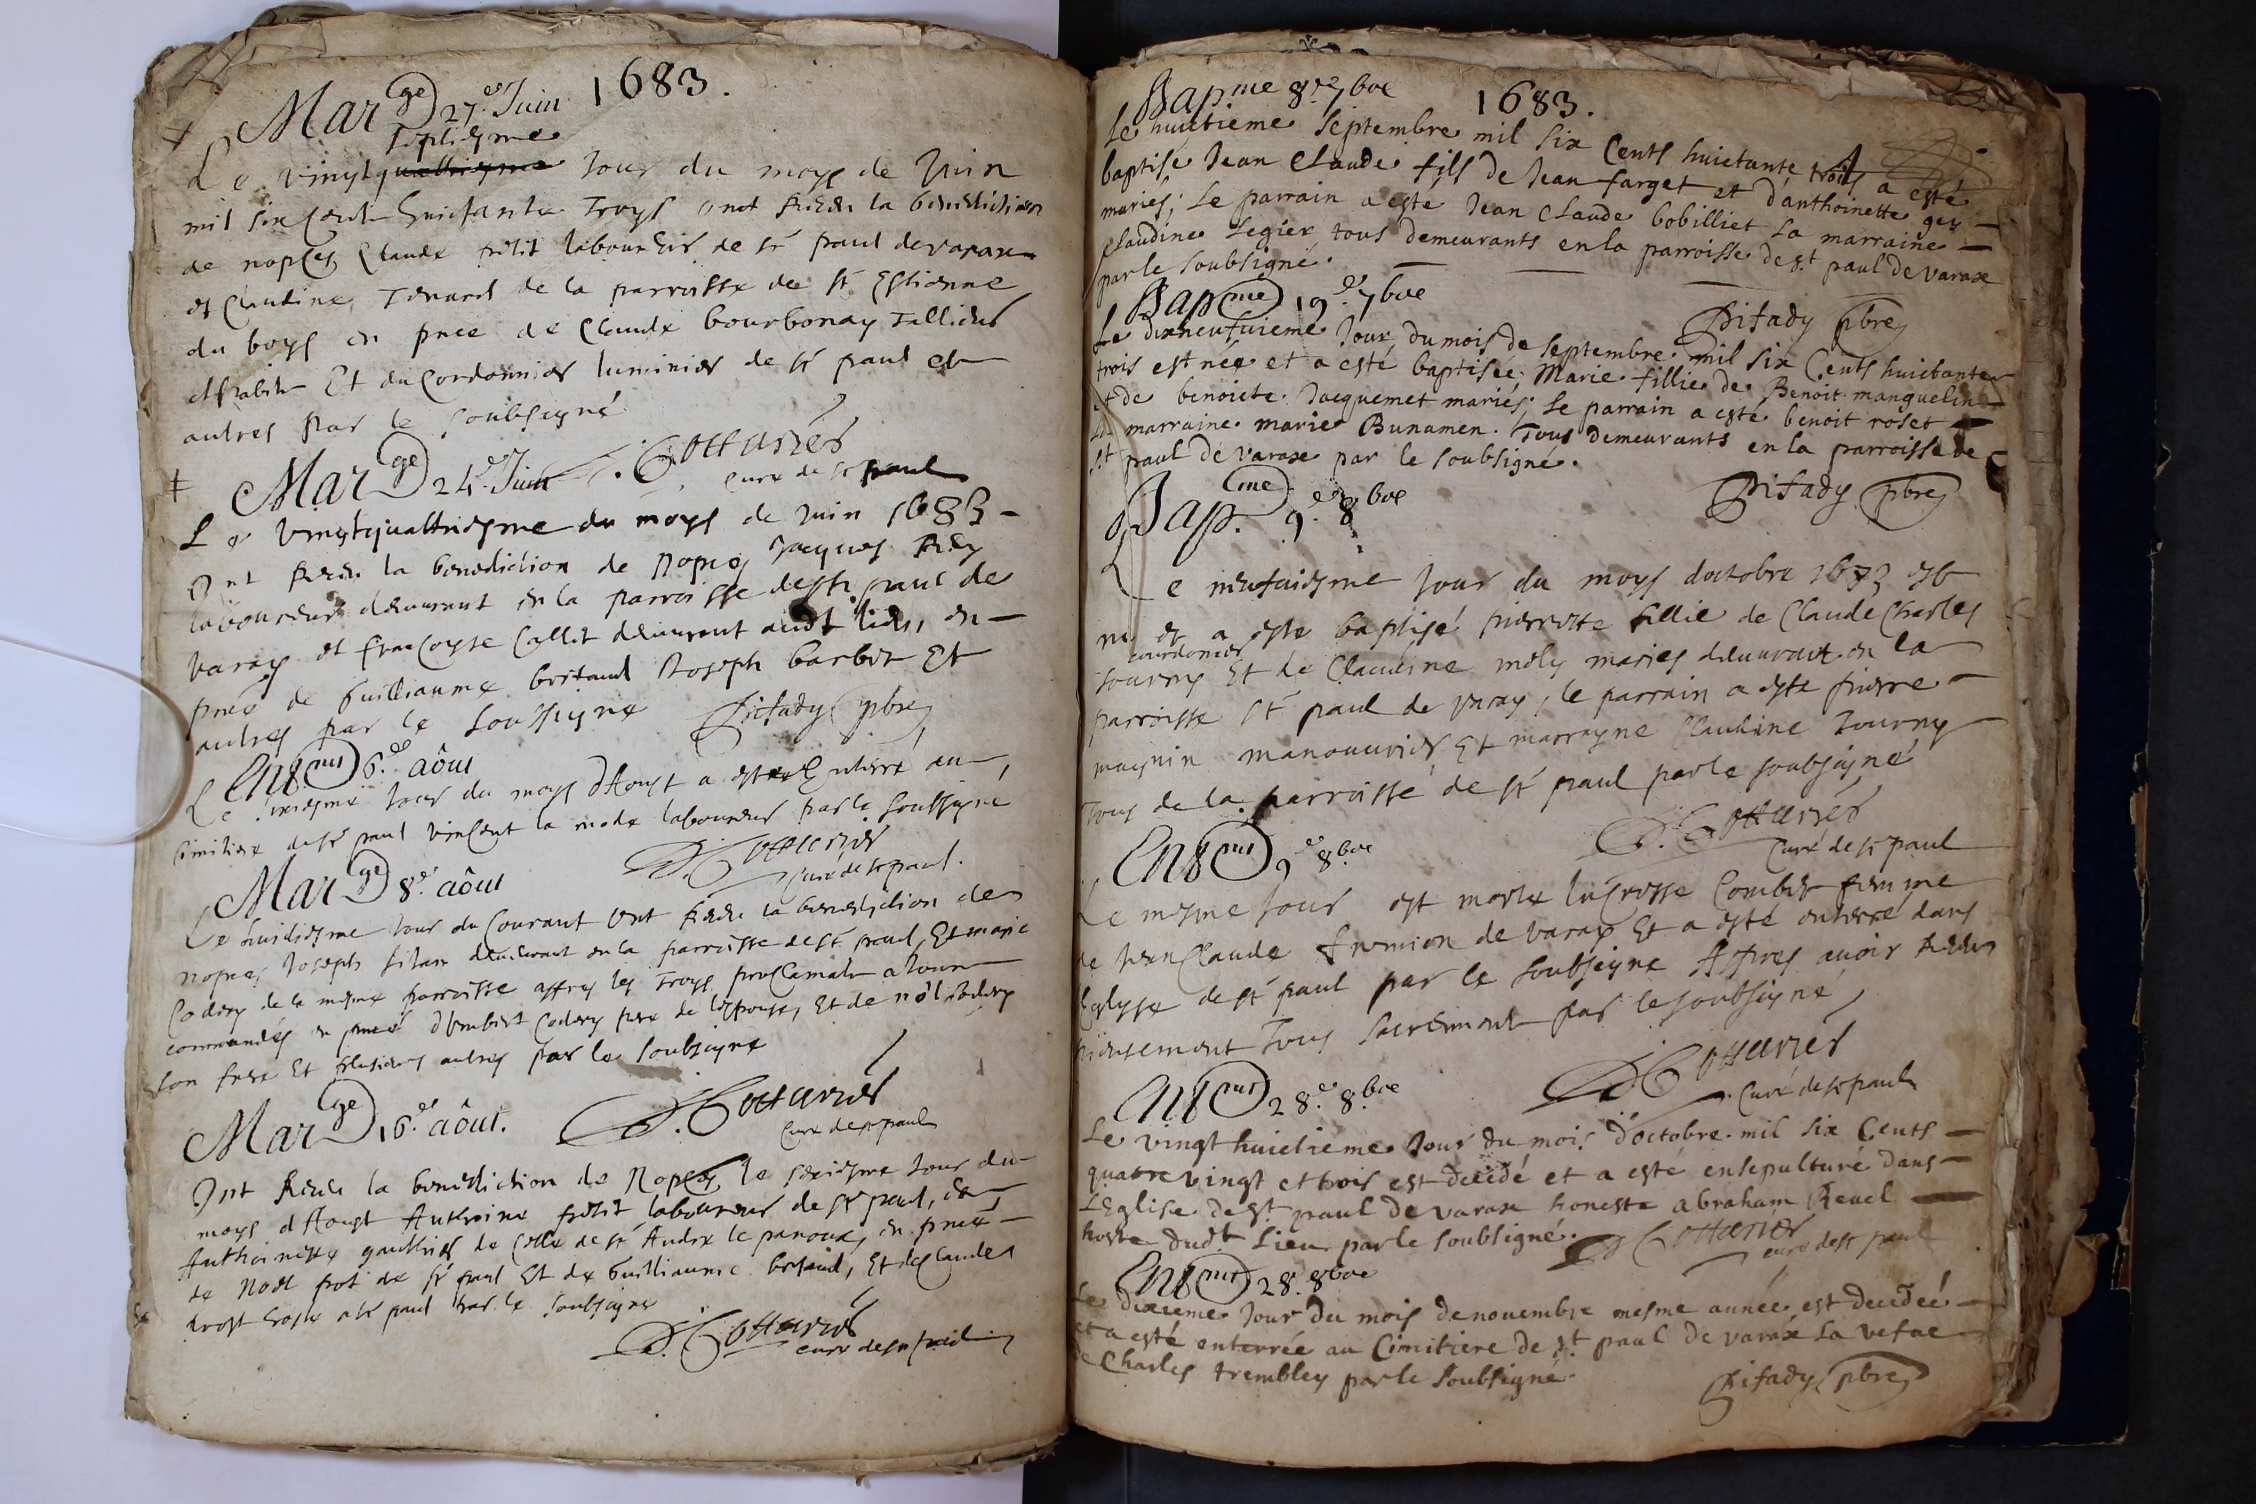 1683.
Mar^ge 27.e Juin
septiesme
Le vingt quattriesme jour du moys de Juin
mil six cent huictante troys ont receu la benediction
de nopces Claude petit laboureur de st paul de varax
et Claudine Tenard de la parroisse de st Estienne
du boys en pnce de Claude bourbonay
Et du Cordonnier luminier de st paul et
autres par le soubsigné
Cottarier
curé de st paul
Mar^ge 24.e Juin
Le vingtquattriesme du moys de Juin 1683 -
Ont receu la benediction de Nopces Jacques
laboureur demeurant en la parroisse de st paul de
varax et francoyse Collet demeurant audt lieu, en -
pnce de Guilliaume britaud Joseph barbet Et
autres par le soussigné
Pitady pbre
Ent^mt 6.e aôut
Le jour du moys d'Aoust a esté Enterré au
Cimitiere de st paul vincent la mode laboureur par le soussigné
Cottarier
Curé de st paul.
Mar^ge 8.e aôut
Le huictiesme jour du Courant ont receu la benediction de
nopces Joseph demeurant en la parroisse de st paul, Et marie
Codery de la mesme parroisse appres les troys proclamats
en pnce d'Umbert Codery pere de l'espouse, Et de
son frere Et plusieurs autres par le soubsigné
Cottarier
Curé de st paul
Mar^ge 16.e aôut.
Ont Receu la benediction de Nopces le seziesme jour du
moys d'Aoust Anthoine petit laboureur de st paul, et
Anthoinette gauthier de Celle de st André le panoux, en pnce -
de Noel de st paul Et de Guilliaume britaud, Et de Claude
a st paul par le soubsigné
Cottarier
curé de st paul
Bap^me 8.e 7^bre
1683.
Le huictieme septembre mil six Cents huictante trois a esté
baptisé Jean Claude fils de Jean farget et d'anthoinette gey -
mariés; Le parrain a esté Jean Claude bobilliet La marraine -
Claudine Legier tous demeurants en la parroisse de st paul de varax
par le soubsigné.
Pitady pbre
Bap^me 19.e 7^bre
Le dixneufuieme Jour du mois de septembre mil six Cents huictante
trois est née et a esté baptisée Marie fillie de Benoit manguelin
et de benoicte Jacquemet mariés; Le parrain a esté benoit roset
La marraine marie Bunamen. Tous demeurants en la parroisse de
st paul de varax par le soubsigné.
Pitady pbre
Bap.^me 9.e 8^bre
Le neufuiesme jour du moys doctobre 1683 est
né et a esté baptisé pierrette fillie de Claude Charles
courdonier
tourny Et de Claudine mely mariés demeurant en la
parroisse st paul de varax, le parrain a esté pierre -
maignin manouurier Et marrayne Claudine tourny
Tous de la parroisse de st paul par le soubsigné
Cottarier
Curé de st paul
Ent^mt 9.e 8^bre
Le mesme jour est morte femme
de Jean Claude fremion de varax Et a esté enterré dans
l'eglyse de st paul par le soubsigné Appres avoir receu
pieusement Tous sacrement par le soubsigné
Cottarier
Curé de st paul
Ent^mt 28.e 8^bre
Le vingt huictieme Jour du mois d'octobre mil six Cents -
quatre vingt et trois est decedé et a esté ensepulturé dans -
L'Eglise de st paul de varax honeste abraham Revel
hoste dudt Lieu par le soubsigné.
Cottarier
curé de st paul
Ent^mt 28. 8^bre
Le dixieme Jour du mois de novembre mesme année est decedeé -
et a esté enterrée au Cimitiere de st paul de varax La vefue
de Charles trembley par le soubsigné.
Pitady pbre